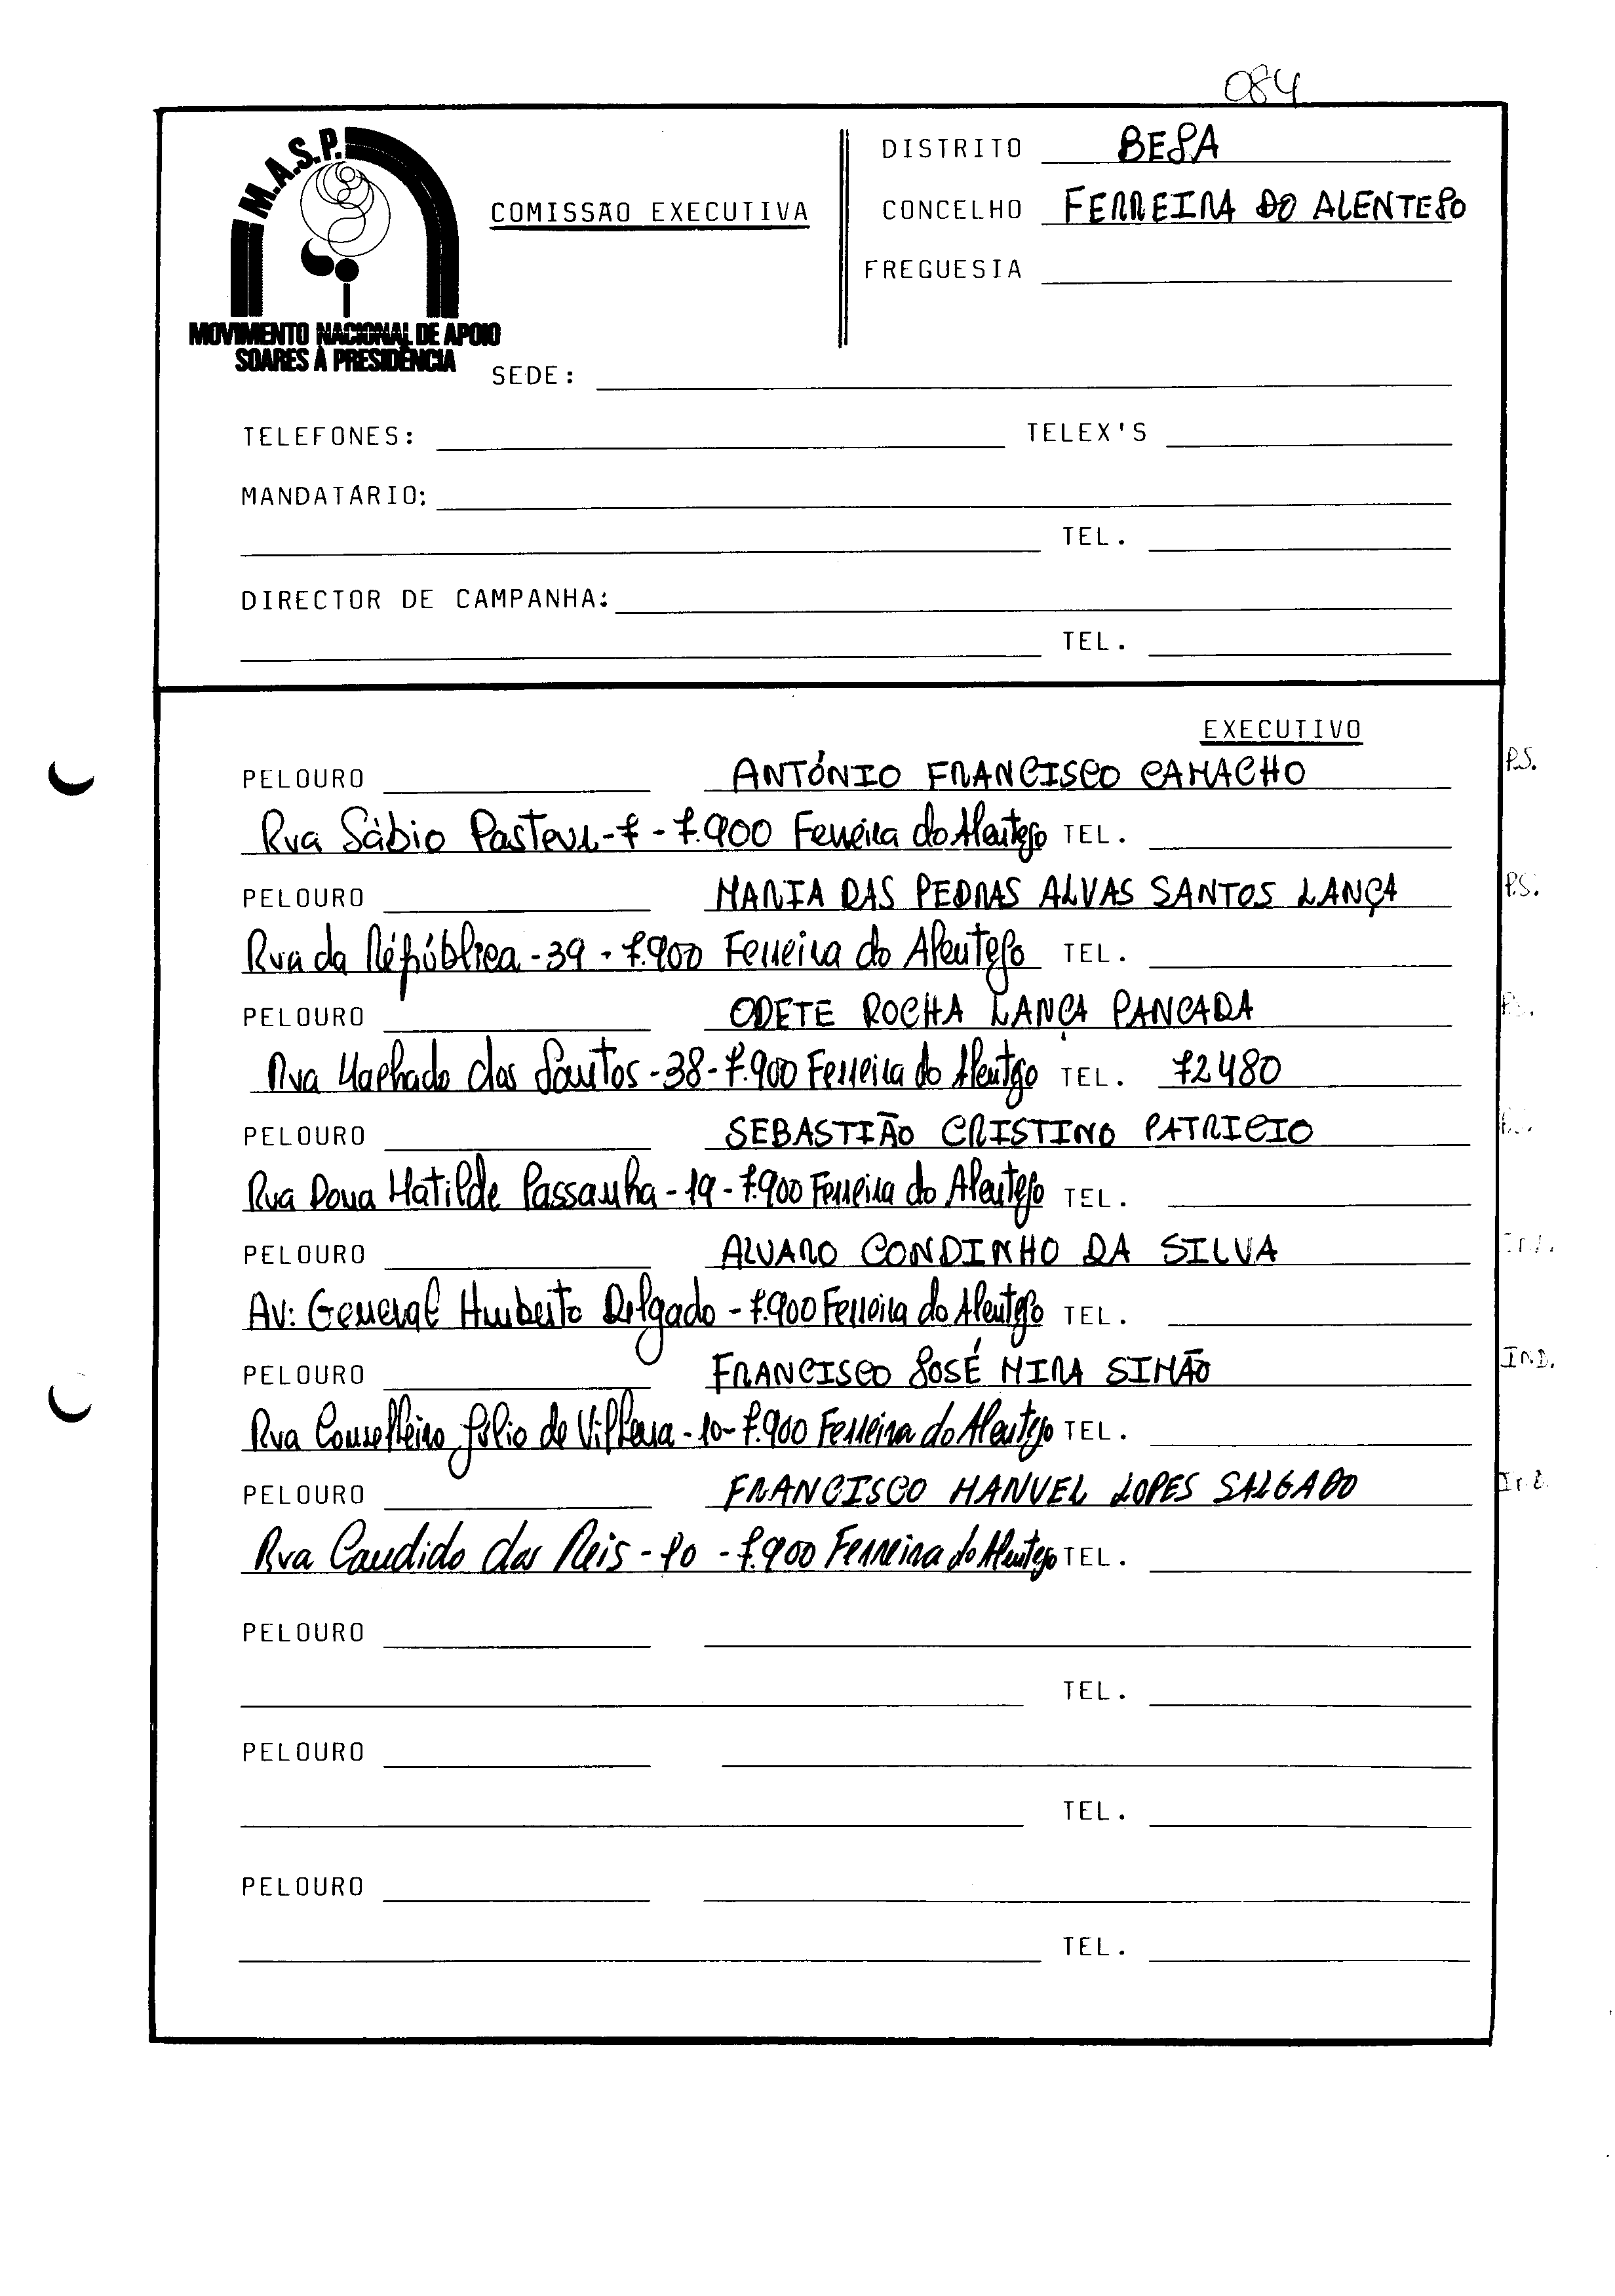 084
M.A.S.P.
MOVIMENTO NACIONAL DE APOIO
SOARES À PRESIDÊNCIA
COMISSÃO EXECUTIVA
DISTRITO BEJA
CONCELHO FERREIRA DO ALENTEJO
FREGUESIA
SEDE:
TELEFONES: TELEX'S
MANDATÁRIO:
TEL.
DIRECTOR DE CAMPANHA:
TEL.
EXECUTIVO
PELOURO ANTÓNIO FRANCISCO CAMACHO P.S.
Rua Sábio Pasteur - 7 - 7.900 Ferreira do Alentejo TEL.
PELOURO MARIA DAS PEDRAS ALVAS SANTOS LANÇA P.S.
Rua da República - 39 - 7.900 Ferreira do Alentejo TEL.
PELOURO ODETE ROCHA LANÇA PANCADA P.S.
Rua Machado dos Santos - 38 - 7.900 Ferreira do Alentejo TEL. 72480
PELOURO SEBASTIÃO CRISTINO PATRICIO
Rua Dona Matilde Passanha - 19 - 7.900 Ferreira do Alentejo TEL.
PELOURO ALVARO CONDINHO DA SILVA
Av: General Humberto Delgado - 7.900 Ferreira do Alentejo TEL.
PELOURO FRANCISCO JOSÉ MIRA SIMÃO IND.
Rua Conselheiro Júlio de Vilhena - 10 - 7.900 Ferreira do Alentejo TEL.
PELOURO FRANCISCO MANUEL LOPES SALGADO IND.
Rua Candido dos Reis - 10 - 7.900 Ferreira do Alentejo TEL.
PELOURO
TEL.
PELOURO
TEL.
PELOURO
TEL.